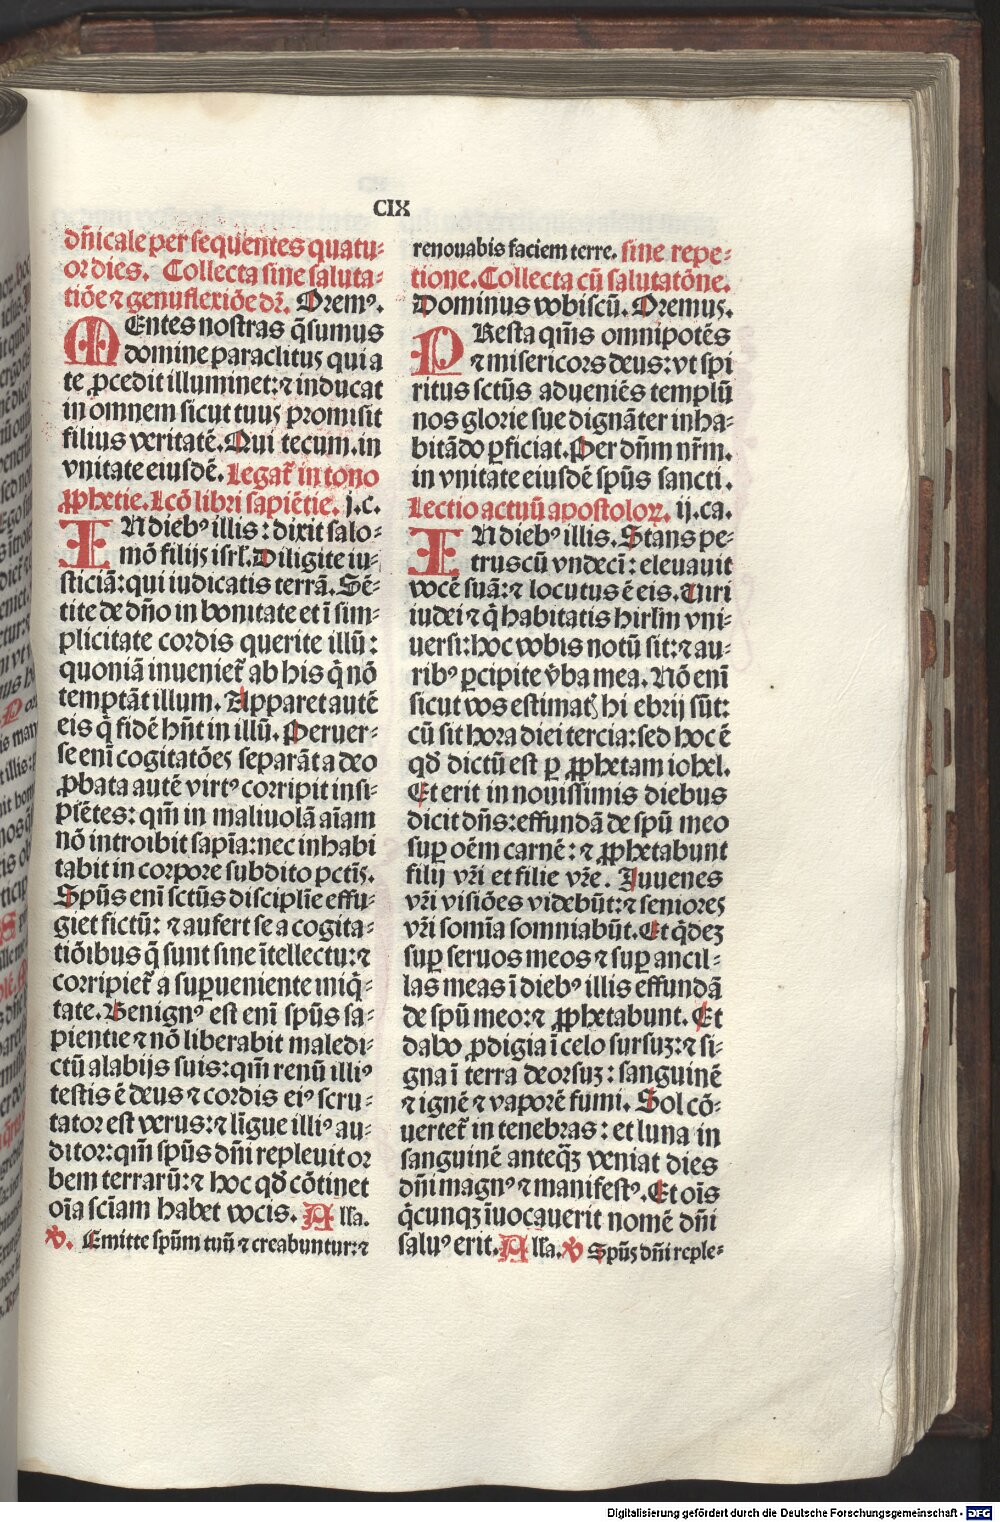 CIX
dñicale per sequentes quatu-
or dies. Collecta sine saluta-
tiōe ⁊ genuflexiōe dr̄. Oremꝰ.
MEntes nostras q̄sumus
domine paraclitus qui a
te ꝓcedit illuminet: ⁊ inducat
in omnem sicut tuus promisit
filius veritatē. Qui tecum. in
vnitate eiusdē. Legat̄ in tono
ꝓphetie. Lcō libri sapiētie. j. c.
IN diebꝰ illis: dixit salo-
mō filijs isrl̄. Diligite iu-
sticiā: qui iudicatis terrā. Sē-
tite de dn̄o in bonitate et ī sim-
plicitate cordis querite illū:
quoniā inueniet̄ ab his q̄ nō
temptāt illum. Apparet autē
eis q̄ fidē hn̄t in illū. Peruer-
se enī cogitatōes separāt a deo
ꝓbata autē virtꝰ corripit insi-
piētes: qm̄ in maliuolā aīam
nō introibit sapīa: nec inhabi
tabit in corpore subdito pctīs.
Spūs enī sctūs discipliē effu-
giet fictū: ⁊ aufert se a cogita-
tiōibus q̄ sunt sine ītellectu: ⁊
corripiet̄ a suꝑueniente iniq̄-
tate. Benignꝰ est enī spūs sa-
pientie ⁊ nō liberabit maledi-
ctū a labijs suis: qm̄ renū illiꝰ
testis ē deus ⁊ cordis eiꝰ scru-
tator est verus: ⁊ līgue illiꝰ au-
ditor: qm̄ spūs dn̄i repleuit or
bem terrarū: ⁊ hoc qd̄ cōtinet
oīa scīam habet vocis. Alla.
℣. Emitte spūm tuū ⁊ creabuntur: ⁊
renouabis faciem terre. sine repe-
tione. Collecta cū salutatōne.
Dominus vobiscū. Oremus.
PResta qm̄s omnipotēs
⁊ misericors deus: vt spi
ritus sctūs adueniēs templū
nos glorie sue dignāter inha-
bitādo ꝑficiat. Per dn̄m nr̄m.
in vnitate eiusdē spūs sancti.
Lectio actuū apostoloꝝ. ij. ca.
IN diebꝰ illis. Stans pe-
trus cū vndecī: eleuauit
vocē suā: ⁊ locutus ē eis. Uiri
iudei ⁊ q̄ habitatis hirl̄m vni-
uersi: hoc vobis notū sit: ⁊ au-
ribꝰ ꝑcipite v̄ba mea. Nō enī
sicut vos estimat̄ hi ebrij sūt:
cū sit hora diei tercia: sed hoc ē
qd̄ dictū est ꝑ ꝓphetam iohel.
Et erit in nouissimis diebus
dicit dn̄s: effundā de spū meo
suꝑ oēm carnē: ⁊ ꝓphetabunt
filij vr̄i et filie vr̄e. Iuuenes
vr̄i visiōes videbūt: ⁊ seniores
vr̄i somīa somniabūt. Et q̄deꝫ
suꝑ seruos meos ⁊ suꝑ ancil-
las meas ī diebꝰ illis effundā
de spū meo: ⁊ ꝓphetabunt. Et
dabo ꝓdigia ī celo sursuꝫ: ⁊ si-
gna ī terra deorsuꝫ: sanguinē
⁊ ignē ⁊ vaporē fumi. Sol cō-
uertet̄ in tenebras: et luna in
sanguinē anteq̄ꝫ veniat dies
dn̄i magnꝰ ⁊ manifestꝰ. Et oīs
q̄cunqꝫ īuocauerit nomē dn̄i
saluꝰ erit. Alla. ℣ Spūs dn̄i reple-
Digitalisierung gefördert durch die Deutsche Forschungsgemeinschaft - DFG